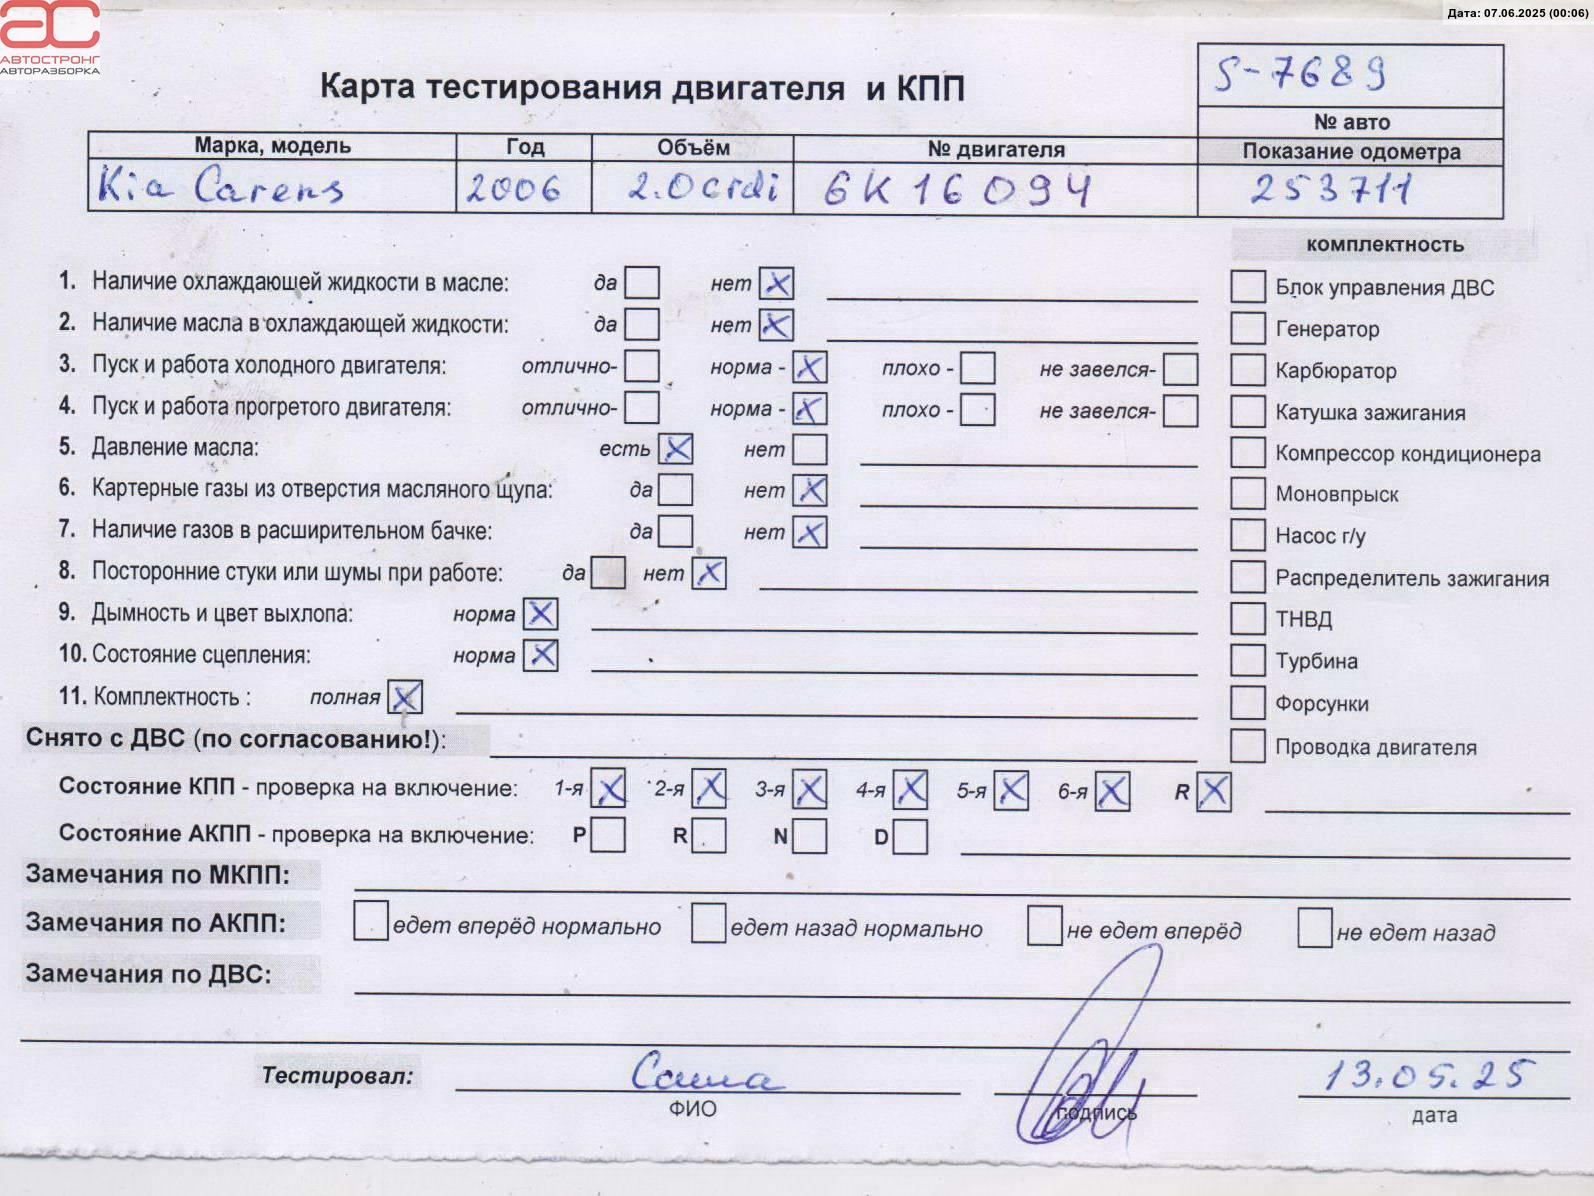 Дата: 07.06.2025 (00:06)
АС
АВТОСТРОНГ
АВТОРАЗБОРКА
Карта тестирования двигателя и КПП
S-7689
№ авто
Марка, модель Год Объём № двигателя Показание одометра
Kia Carens 2006 2.0crdi 6K16094 253711
комплектность
1. Наличие охлаждающей жидкости в масле: да нет X
2. Наличие масла в охлаждающей жидкости: да нет X
3. Пуск и работа холодного двигателя: отлично- норма - X плохо - не завелся-
4. Пуск и работа прогретого двигателя: отлично- норма - X плохо - не завелся-
5. Давление масла: есть X нет
6. Картерные газы из отверстия масляного щупа: да нет X
7. Наличие газов в расширительном бачке: да нет X
8. Посторонние стуки или шумы при работе: да нет X
9. Дымность и цвет выхлопа: норма X
10. Состояние сцепления: норма X
11. Комплектность : полная X
Блок управления ДВС
Генератор
Карбюратор
Катушка зажигания
Компрессор кондиционера
Моновпрыск
Насос г/у
Распределитель зажигания
ТНВД
Турбина
Форсунки
Проводка двигателя
Снято с ДВС (по согласованию!):
Состояние КПП - проверка на включение: 1-я X 2-я X 3-я X 4-я X 5-я X 6-я X R X
Состояние АКПП - проверка на включение: P R N D
Замечания по МКПП:
Замечания по АКПП: едет вперёд нормально едет назад нормально не едет вперёд не едет назад
Замечания по ДВС:
Тестировал: Саша 13.05.25
ФИО подпись дата